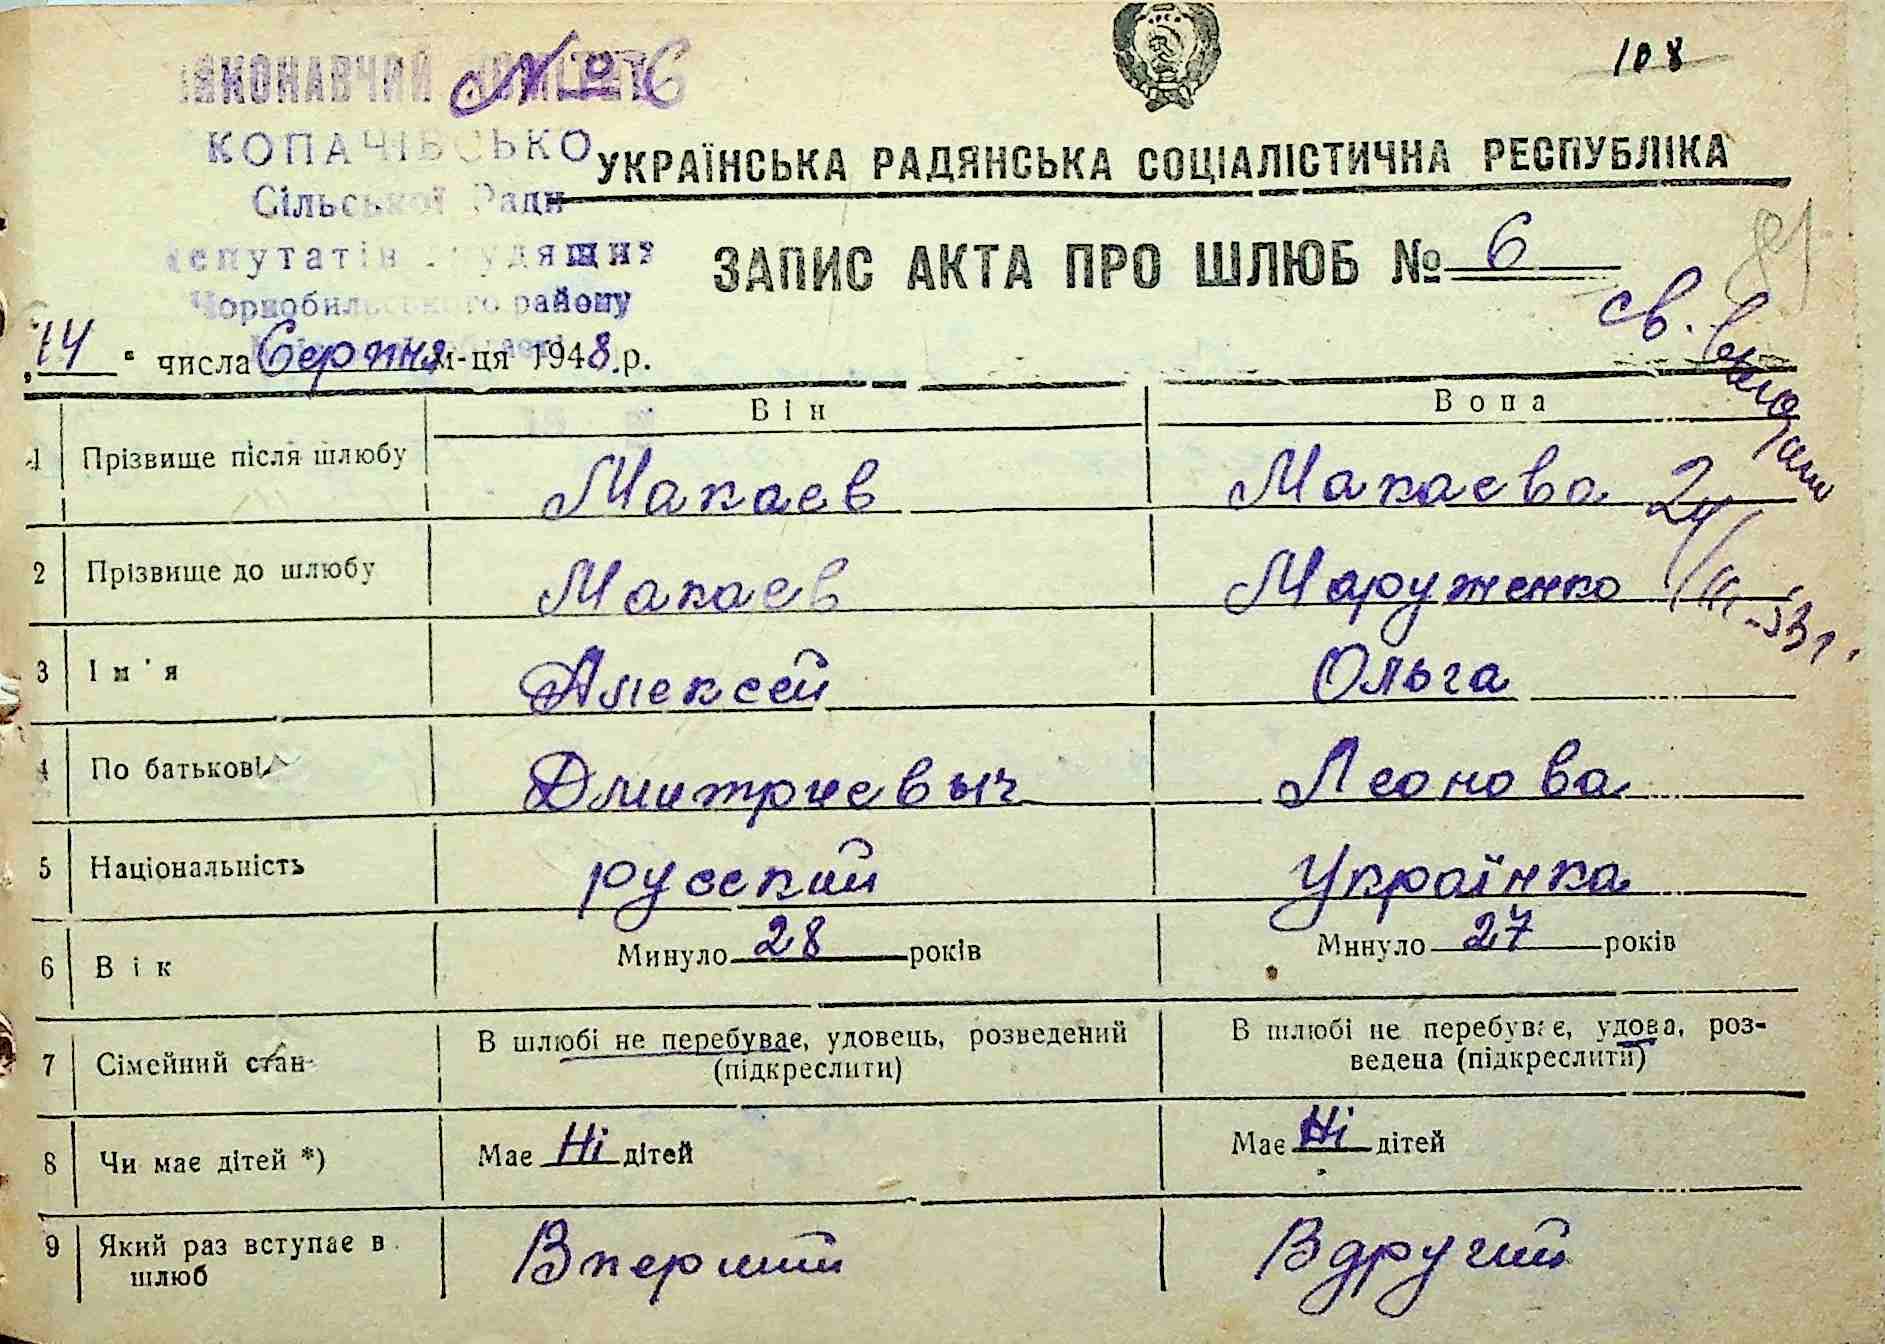 108
№ 6
ВИКОНАВЧИЙ КОМІТЕТ
КОПАЧІВСЬКО
Сільської Ради
депутатів трудящих
Чорнобильського району
УКРАЇНСЬКА РАДЯНСЬКА СОЦІАЛІСТИЧНА РЕСПУБЛІКА
ЗАПИС АКТА ПРО ШЛЮБ № 6
81
„14“ числа Серпня м-ця 1948 р.
св.
Він Вона
1 Прізвище після шлюбу Макаев Макаева
2 Прізвище до шлюбу Макаев Маруженко
3 Ім'я Алексей Ольга
4 По батькові Дмитриевыч Леонова
5 Національність русский Українка
6 Вік Минуло 28 років Минуло 27 років
7 Сімейний стан В шлюбі не перебуває, удовець, розведений (підкреслити) В шлюбі не перебуває, удова, роз-
ведена (підкреслити)
8 Чи має дітей *) Має Ні дітей Має Ні дітей
9 Який раз вступає в Вперший Вдругий
шлюб